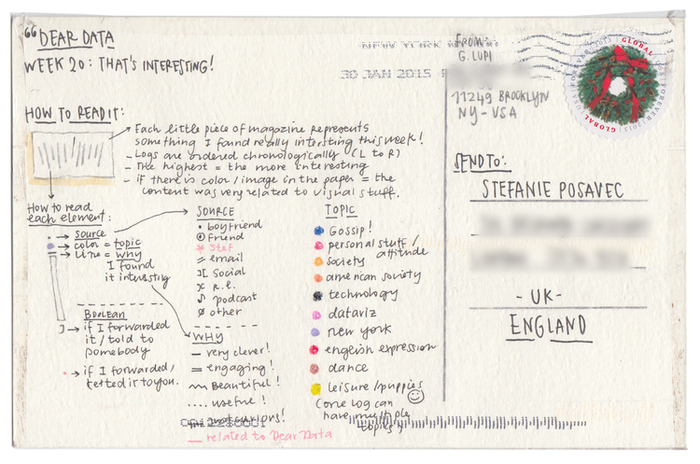 "DEAR DATA
WEEK 20: THAT'S INTERESTING!
HOW TO READ IT:
Each little piece of magazine represents
something I found really intersting this week!
- Logs are ordered chronologically (L to R)
- The highest = the more interesting
- if there is color/image in the paper = the
content was very related to visual stuff.
How to read
each element:
source
color = topic
line = why
I found
it interesting
BOOLEAN
if I forwarded
it/told to
somebody
if I forwarded/
texted it to you.
SOURCE
boyfriend
friend
Stef
email
Social
r.l.
podcast
other
WHY
very clever!
engaging!
Beautiful!
useful!
related to Dear Data
TOPIC
Gossip!
personal stuff/
attitude
society
american society
technology
dataviz
new york
english expression
dance
leisure/puppies
(one log can
have multiple
topics)
NEW YORK
30 JAN 2015
FROM:
G. LUPI
11249 BROOKLYN
NY - USA
GLOBAL
FOREVER
2013
GLOBAL
SEND TO:
STEFANIE POSAVEC
- UK -
ENGLAND